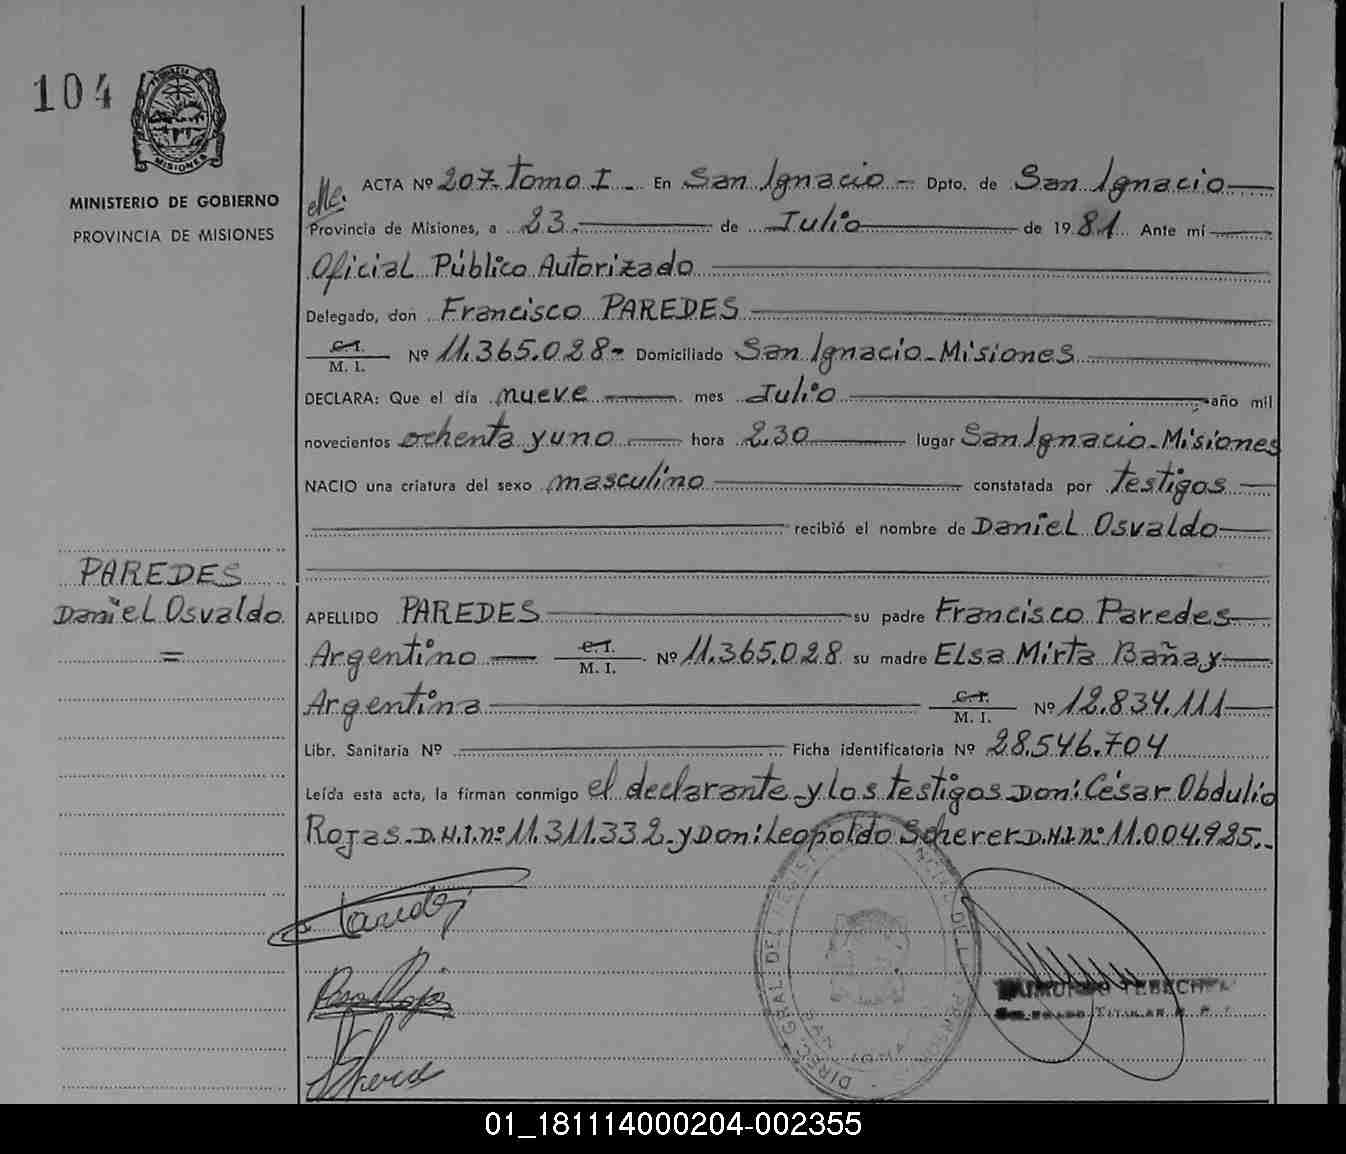 104
PROVINCIA DE
MISIONES
MINISTERIO DE GOBIERNO
PROVINCIA DE MISIONES
PAREDES
Daniel Osvaldo
=
ACTA Nº 207- Tomo I - En San Ignacio - Dpto. de San Ignacio
Provincia de Misiones, a 23 de Julio de 1981 Ante mí
Oficial Público Autorizado
Delegado, don Francisco PAREDES
C.I. M. I. Nº 11.365.028- Domiciliado San Ignacio - Misiones
DECLARA: Que el día nueve mes Julio año mil
novecientos ochenta y uno hora 2.30 lugar San Ignacio - Misiones
NACIO una criatura del sexo masculino constatada por testigos
recibió el nombre de Daniel Osvaldo
APELLIDO PAREDES su padre Francisco Paredes
Argentino C.I. M. I. Nº 11.365.028 su madre Elsa Mirta Bañay
Argentina C.I. M. I. Nº 12.834.111
Libr. Sanitaria Nº Ficha identificatoria Nº 28.546.704
Leída esta acta, la firman conmigo el declarante y los testigos Don: César Obdulio
Rojas - D.N.I. nº 11.311.332 - y Don: Leopoldo Scherer - D.N.I. nº 11.004.925.-
Paredes
DIREC. GRAL. DEL
RAIMUNDO
TITULAR
01_181114000204-002355